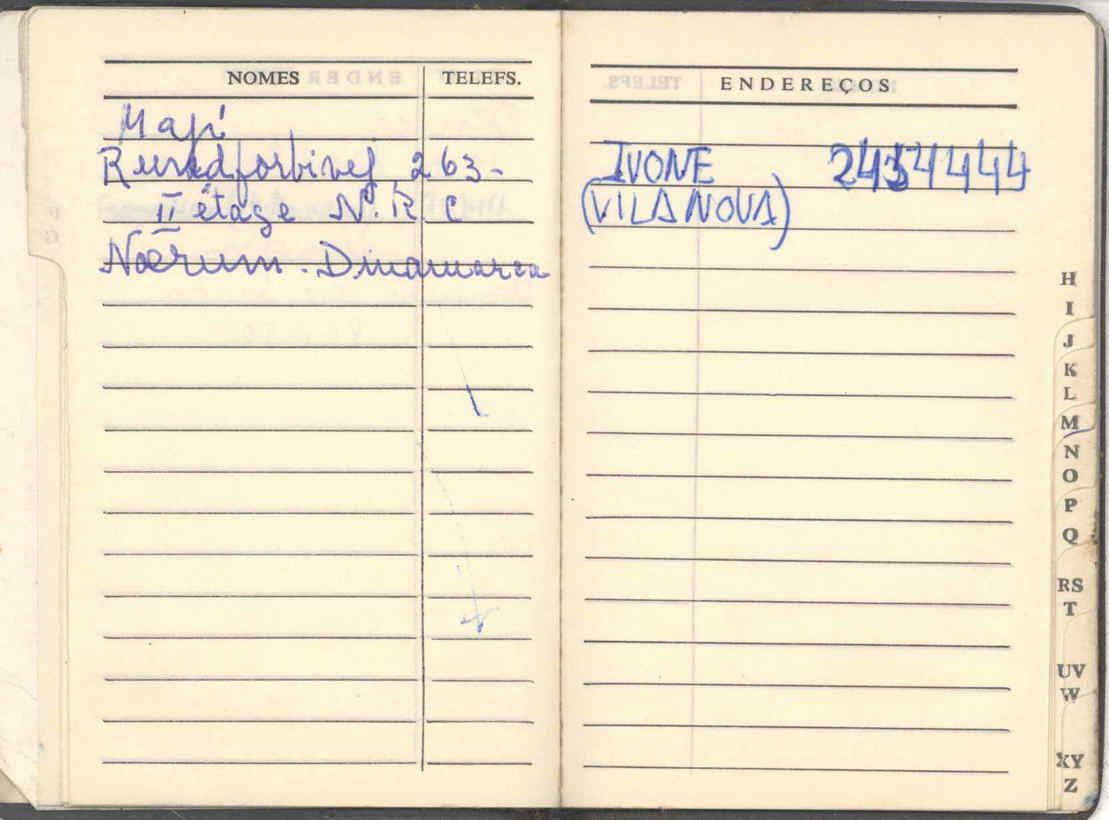 NOMES TELEFS.
Mapí
Rundforbivej 263-
II étage N. R. C
Nœrum. Dinamarca
ENDEREÇOS
IVONE 2454444
(VILA NOVA)
H
I
J
K
L
M
N
O
P
Q
RS
T
UV
W
XY
Z